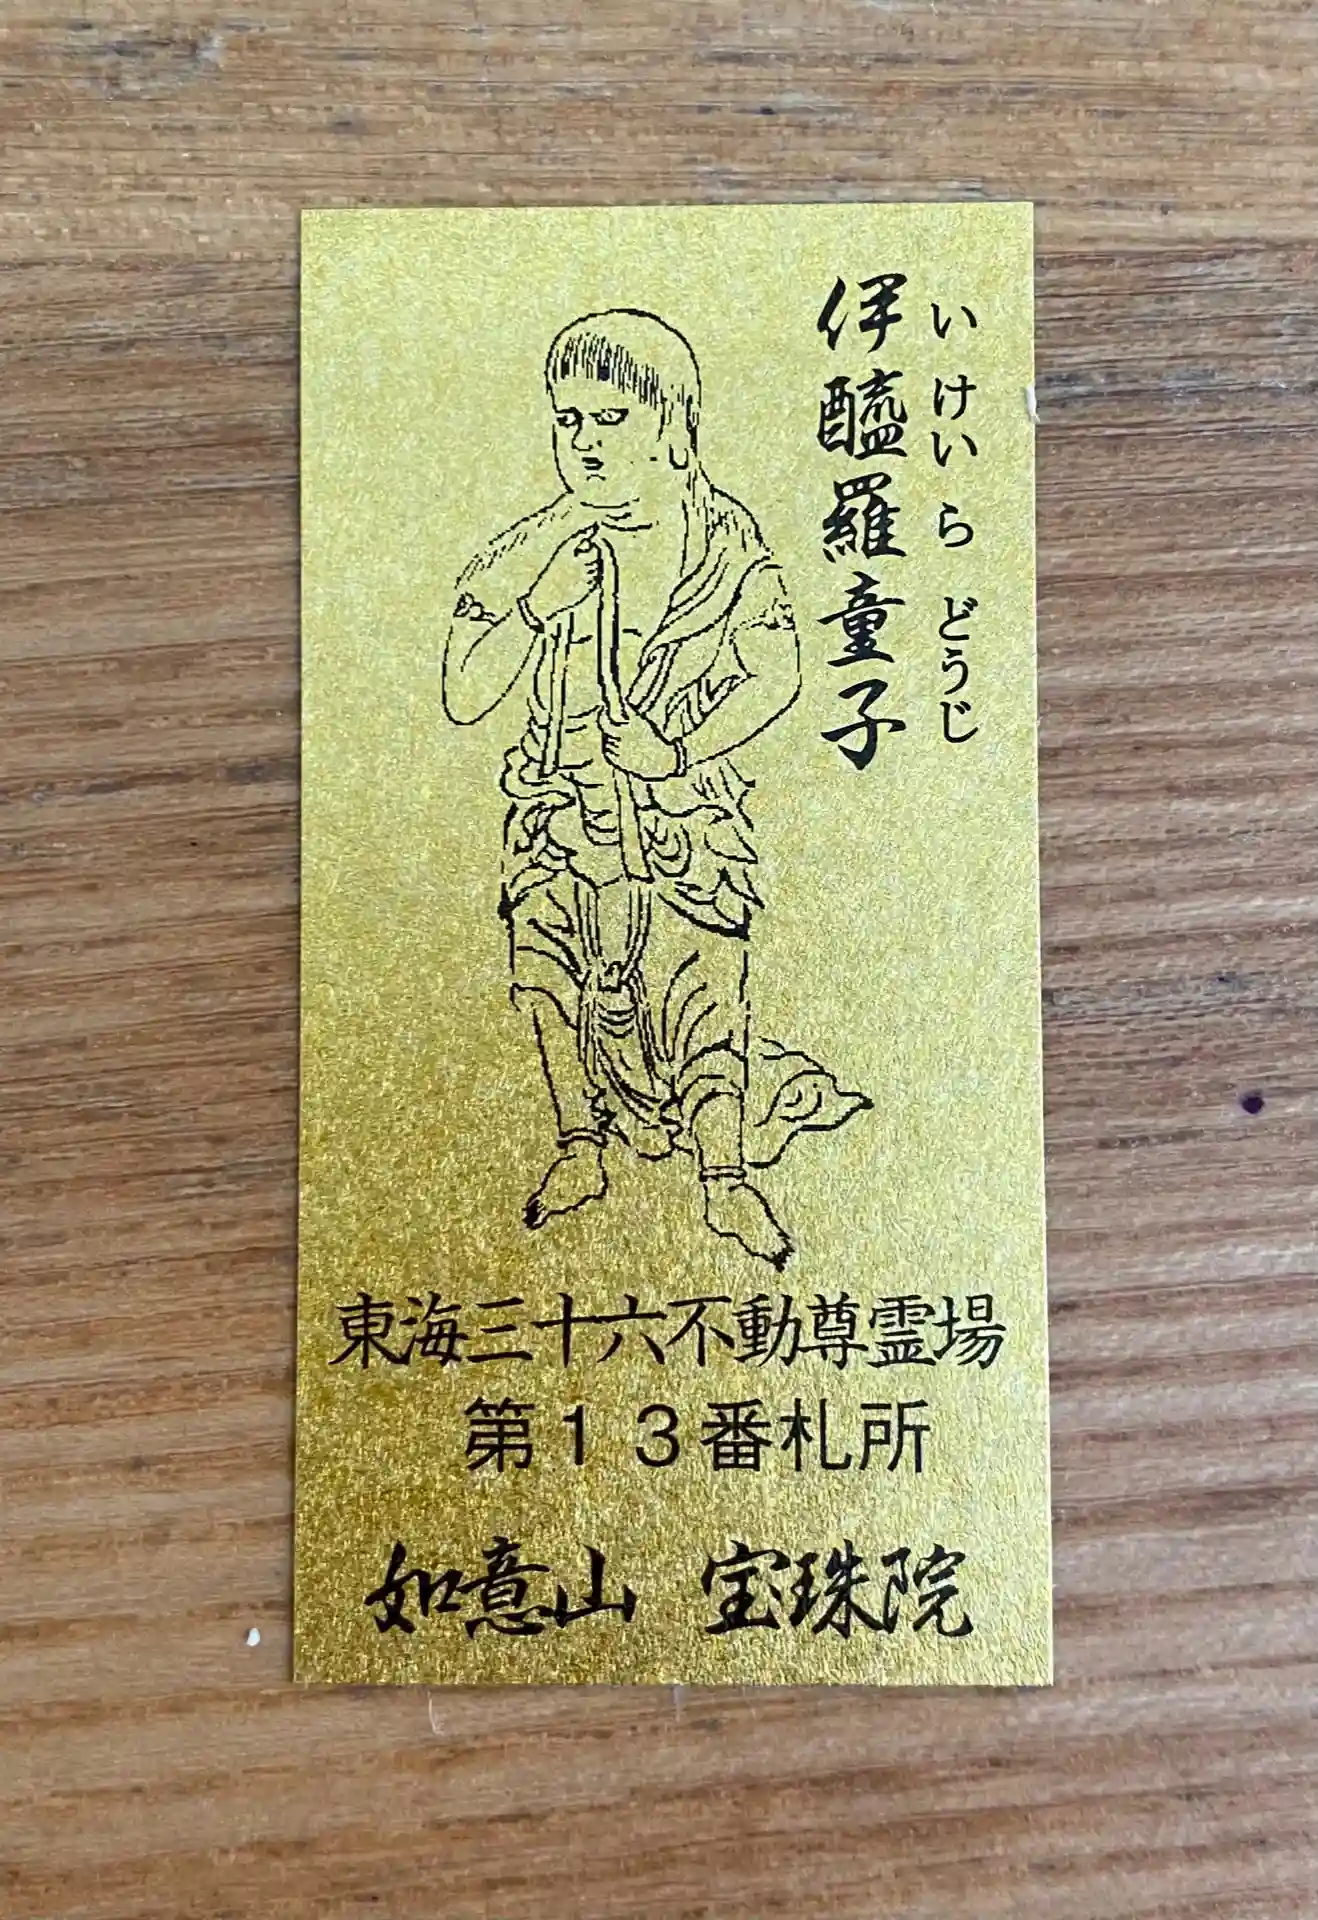 伊醯羅童子
いけいらどうじ
東海三十六不動尊霊場
第13番札所
如意山 宝珠院